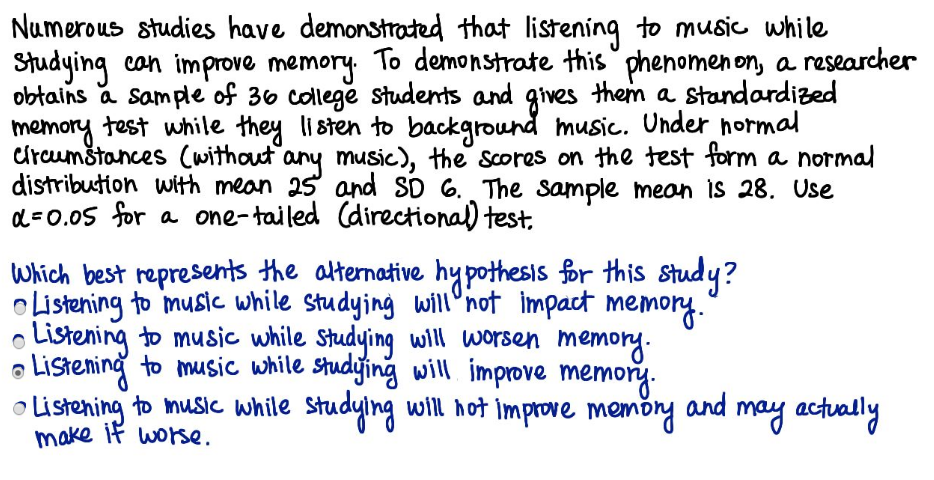 Numerous studies have demonstrated that listening to music while
studying can improve memory. To demonstrate this phenomenon, a researcher
obtains a sample of 36 college students and gives them a standardized
memory test while they listen to background music. Under normal
circumstances (without any music), the scores on the test form a normal
distribution with mean 25 and SD 6. The sample mean is 28. Use
α=0.05 for a one-tailed (directional) test.
Which best represents the alternative hypothesis for this study?
Listening to music while studying will not impact memory.
Listening to music while studying will worsen memory.
Listening to music while studying will improve memory.
Listening to music while studying will not improve memory and may actually
make it worse.